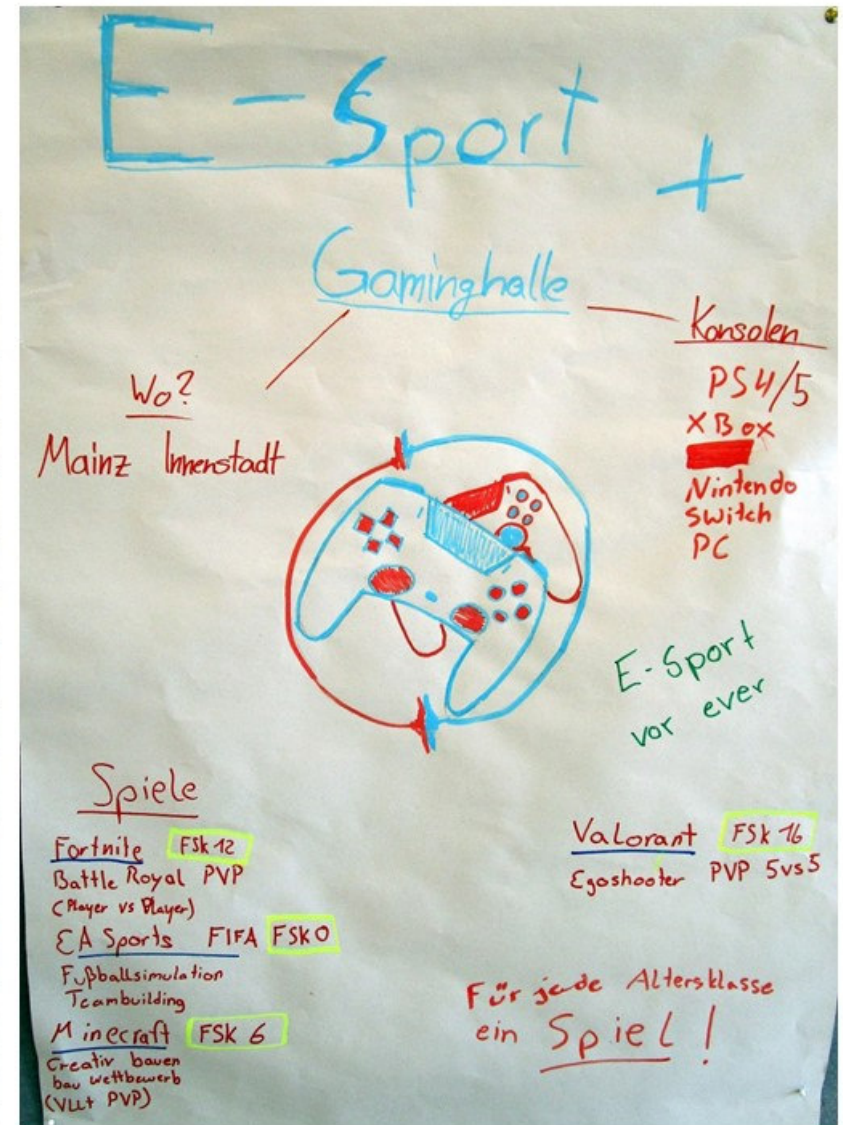 E-Sport
+
Gaminghalle
Konsolen
PS4/5
XBox
Nintendo
Switch
PC
Wo?
Mainz Innenstadt
E-Sport
vor ever
Spiele
Fortnite FSK 12
Battle Royal PVP
(Player vs Player)
EA Sports FIFA FSK 0
Fußballsimulation
Teambuilding
Minecraft FSK 6
Creativ bauen
bau wettbewerb
(Vllt PVP)
Valorant FSK 16
Egoshooter PVP 5vs5
Für jede Altersklasse
ein Spiel!